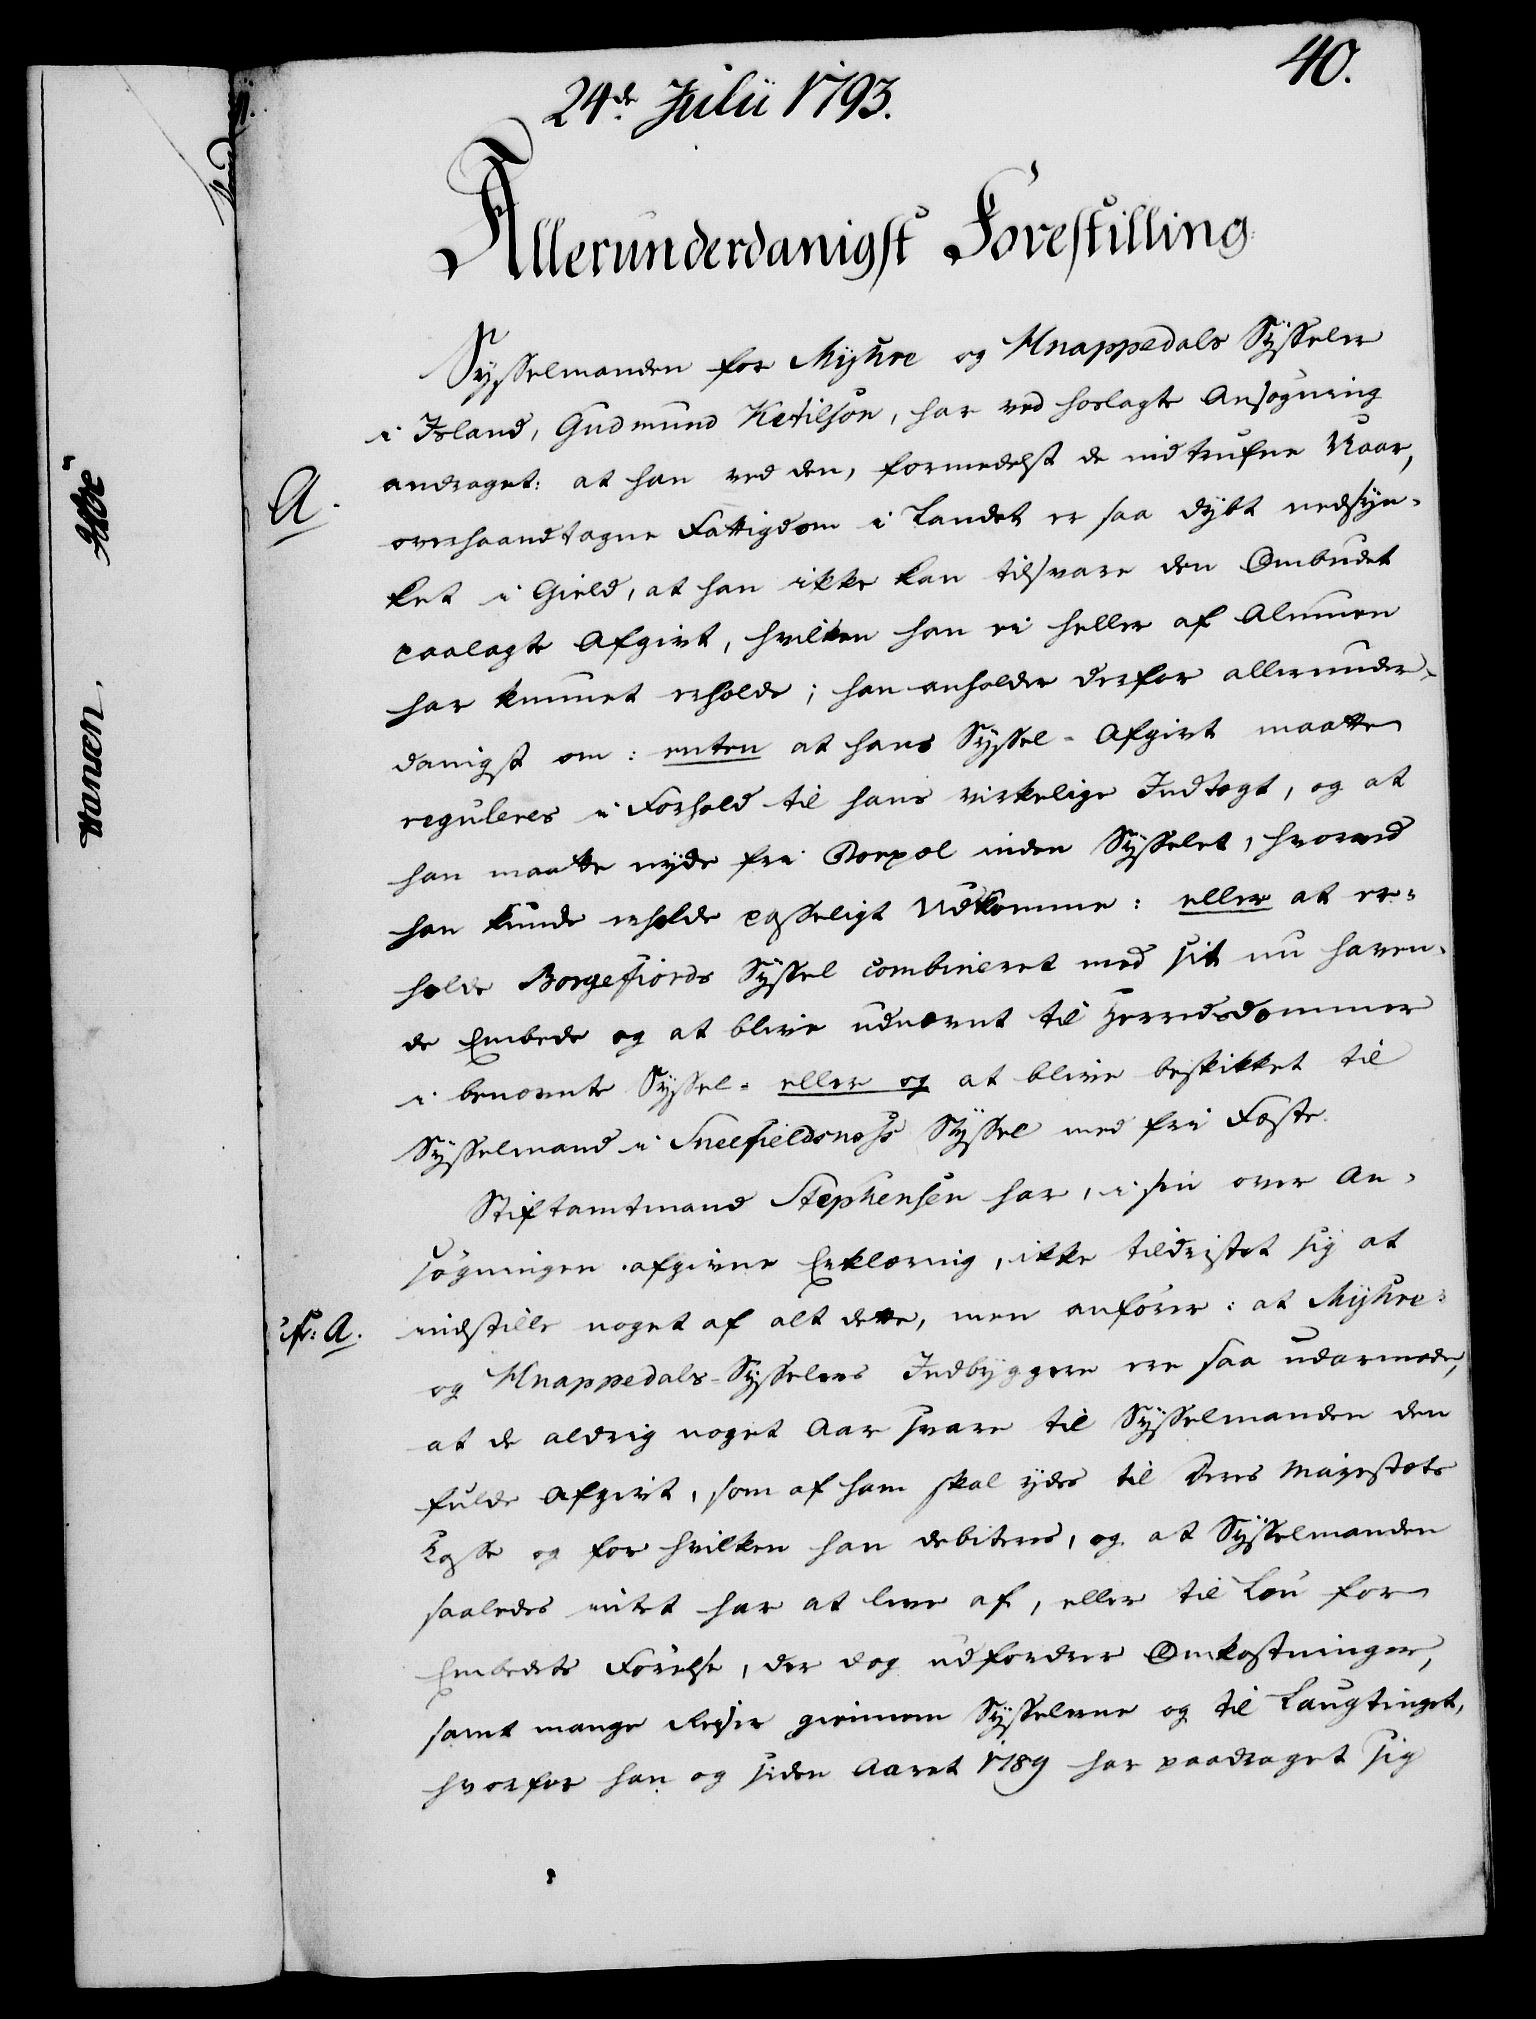 40.
24de Julii 1793.
Allerunderdanigst Forestilling
Sysselmanden for Myhre og Hnappedals Sysseler
i Island, Gudmund Ketilson, har ved hoslagte Ansøgning
A.
andraget: at han ved den, formedelst de indtrufne Uaar,
overhaandtagne Fattigdom i Landet er saa dybt nedsyn-
ket i Gield, at han ikke kan tilsvare den Ombudet
paalagte Afgivt, hvilken han ei heller af Almuen
har kunnet erholde; han anholder derfor allerunder-
danigst om: enten at hans Syssel-Afgivt maatte
reguleres i Forhold til hans virkelige Indtægt, og at
han maatte nyde fri Boepæl inden Sysselet, hvorved
han kunde erholde passeligt Udkomme: eller at er-
holde Borgefiords Syssel combineret med sit nu haven-
de Embede og at blive udnævnt til Herredsdommer
i benævnte Syssel- eller og at blive beskikket til
Sysselmand i Sneefieldsness Syssel med fri Fæste.
Stiftamtmand Stephensen har, i sin over An-
søgningen afgivne Erklæring, ikke tildristet sig at
cfr: A.
indstille noget af alt dette, men anfører: at Myhre-
og Hnappedals-Sysselers Indbyggere ere saa udarmede,
at de aldrig noget Aar svare til Sysselmanden den
fulde Afgivt, som af ham skal ydes til Deres Majestæts
Casse og for hvilken han debiteres, og at Sysselmanden
saaledes intet har at leve af, eller til Løn for
Embedets Førelse, der dog udfordrer Omkostninger,
samt mange Reiser giennem Sysselerne og til Laugtinget,
hvorfor han og siden Aaret 1789 har paadraget sig
Hansen.